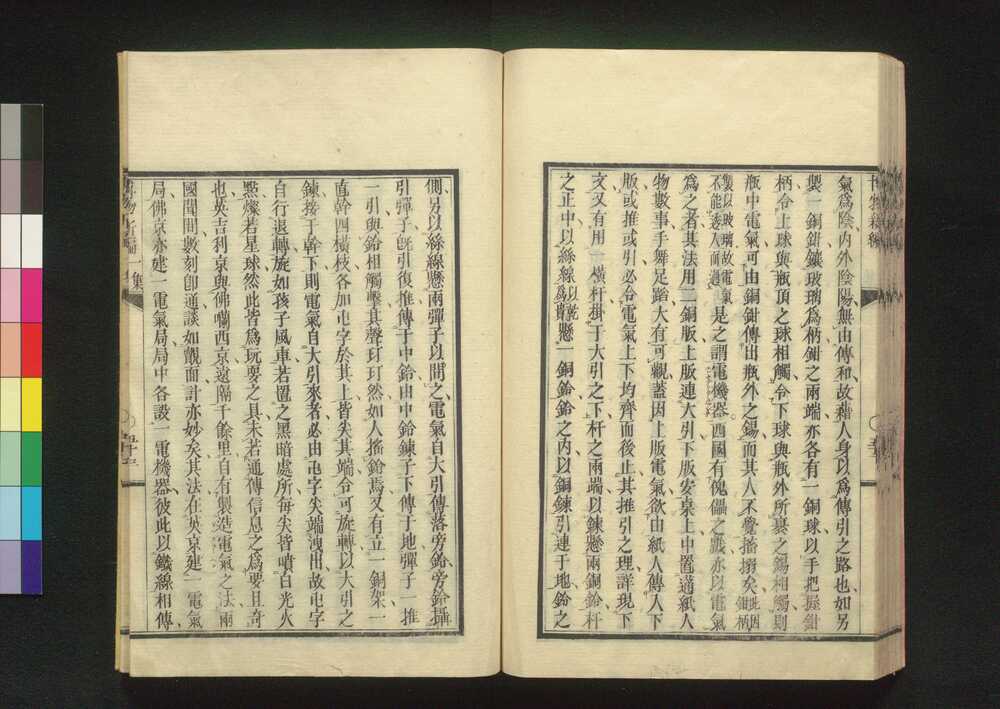 氣爲陰內外陰陽無由傳和故藉人身以爲傳引之路也如另
製一銅鉗鑲玻璃爲柄鉗之兩端亦各有一銅球以手把握鉗
柄令上球與瓶頂之球相觸令下球與瓶外所裹之錫相觸則
瓶中電氣可由銅鉗傳出瓶外之錫而其人不覺搐搦矣此因鉗柄
製以玻璃故電氣不能透入而過是之謂電機器西國有傀儡之戲亦以電氣
爲之者其法用二銅版上版連大引下版安桌上中置通紙人
物數事手舞足蹈大有可觀蓋因上版電氣欲由紙人傳入下
版或推或引必令電氣上下均齊而後止其推引之理詳現下
文又有用一橫杆掛于大引之下杆之兩端以鍊懸兩銅鈴杆
之正中以絲線以乾爲貴懸一銅鈴鈴之內以銅鍊引連于地鈴之
側另以絲線懸兩彈子以間之電氣自大引傳落旁鈴旁鈴攝
引彈子旣引復推傳于中鈴由中鈴鍊子下傳于地彈子一推
一引與鈴相觸擊其聲玎玎然如人搖鈴焉又有立一銅架一
直幹四橫枝各加屯字於其上皆尖其端令可旋轉以大引之
鍊接于幹下則電氣自大引來者必由屯字尖端洩出故屯字
自行退轉旋如孩子風車若置之黑暗處所每尖皆噴白光火
點燦若星球然此皆爲玩耍之具未若通傳信息之爲要且奇
也英吉利京與佛囒西京遠隔千餘里自有製造電氣之法兩
國聞間數刻卽通談如覿面計亦妙矣其法在英京建一電氣
局佛京亦建一電氣局局中各設一電機器彼此以鐵線相傳